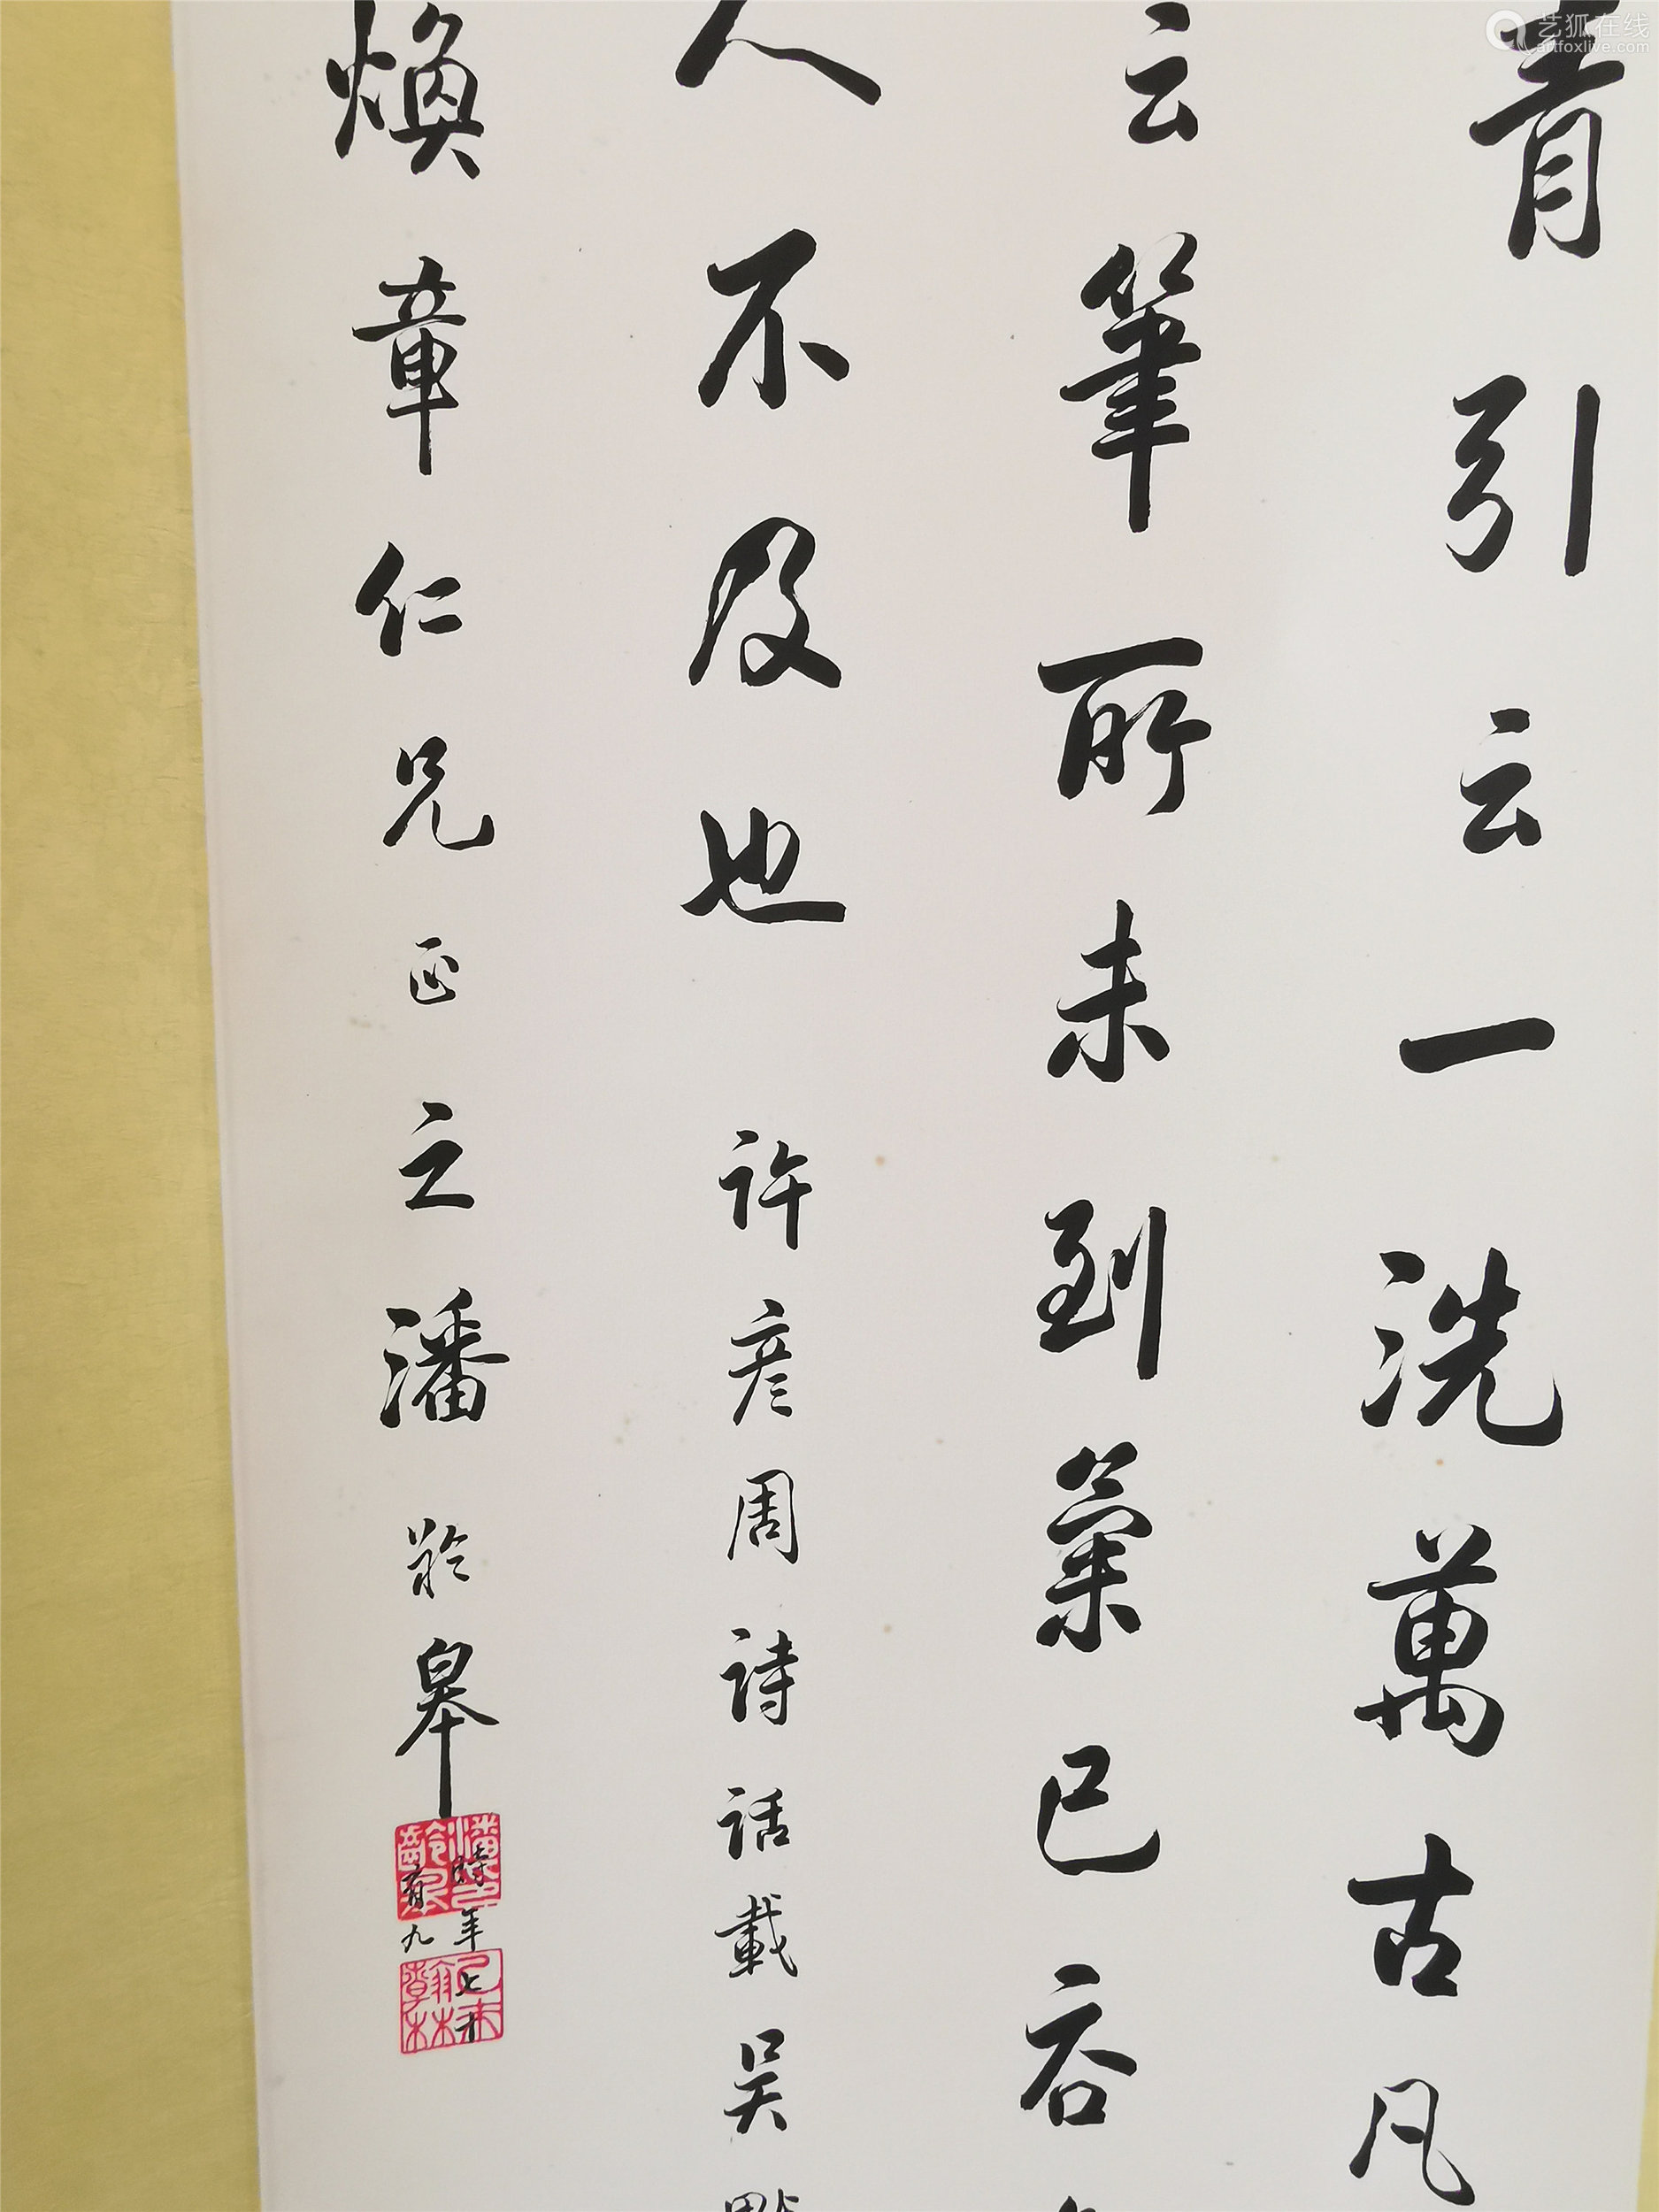 艺狐在线
artfoxlive.com
青引云一洗萬古凡
云筆所未到氣已吞
人不及也 许彦周诗话載吴
煥章仁兄正之潘齡皋
時年七十
有九